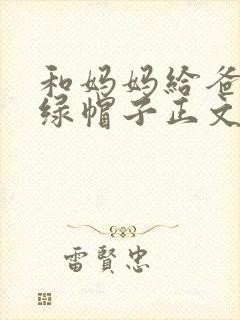 和妈妈给爸
绿帽子正文
雷賢忠